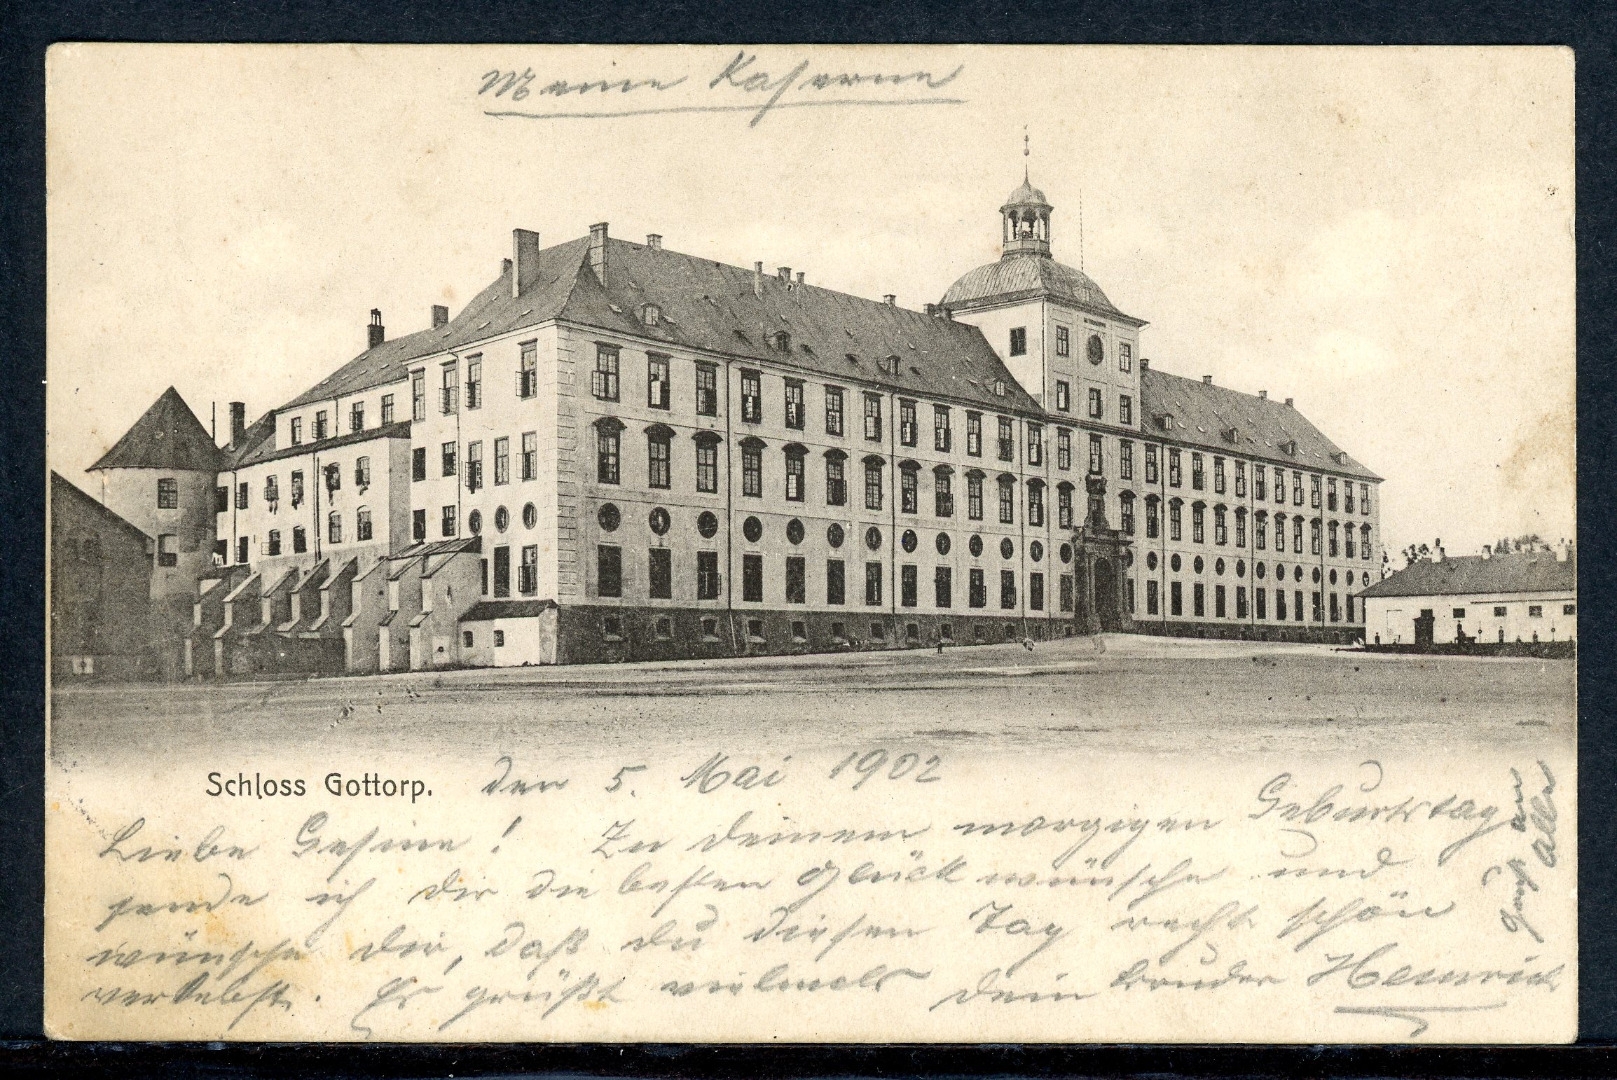 Meine Kaserne
Schloss Gottorp.
den 5. Mai 1902
Liebe Gesine! Zu deinem morgigen Geburtstag
sende ich dir die besten Glückwünsche und
wünsche dir, daß du diesen Tag recht schön
verlebst. Es grüßt vielmals dein Bruder Heinrich
Gruß an
alle